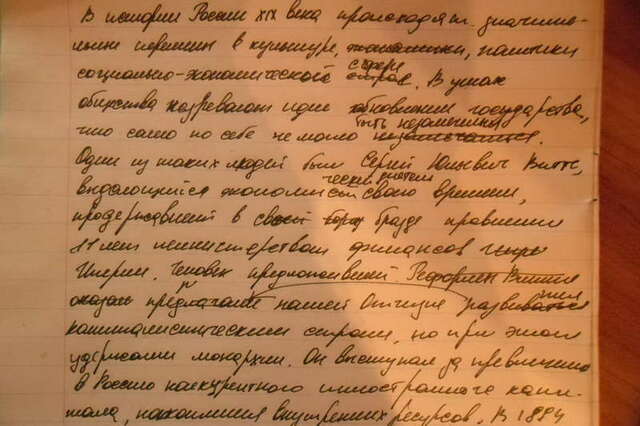 В истории России XIX века происходят значитель-
ные перемены в культуре, политики
социально-экономической сфере. В умах
общества назревают идеи обновления государства,
что само по себе не могло быть незамечен
Один из таких людей был Сергей Юльевич Витте,
выдающийся экономический деятель своего времени,
продержавший в своей бразде правления
11 лет министерством финансов
Империи. Человек Реформы Витте
предлагали нашей Отчизне развитие
капиталистическим строем, но при этом
удержали монархии. Он выступал за привлечение
в Россию конкурентного иностранного капи-
тала, накопления внутренних ресурсов. В 1884